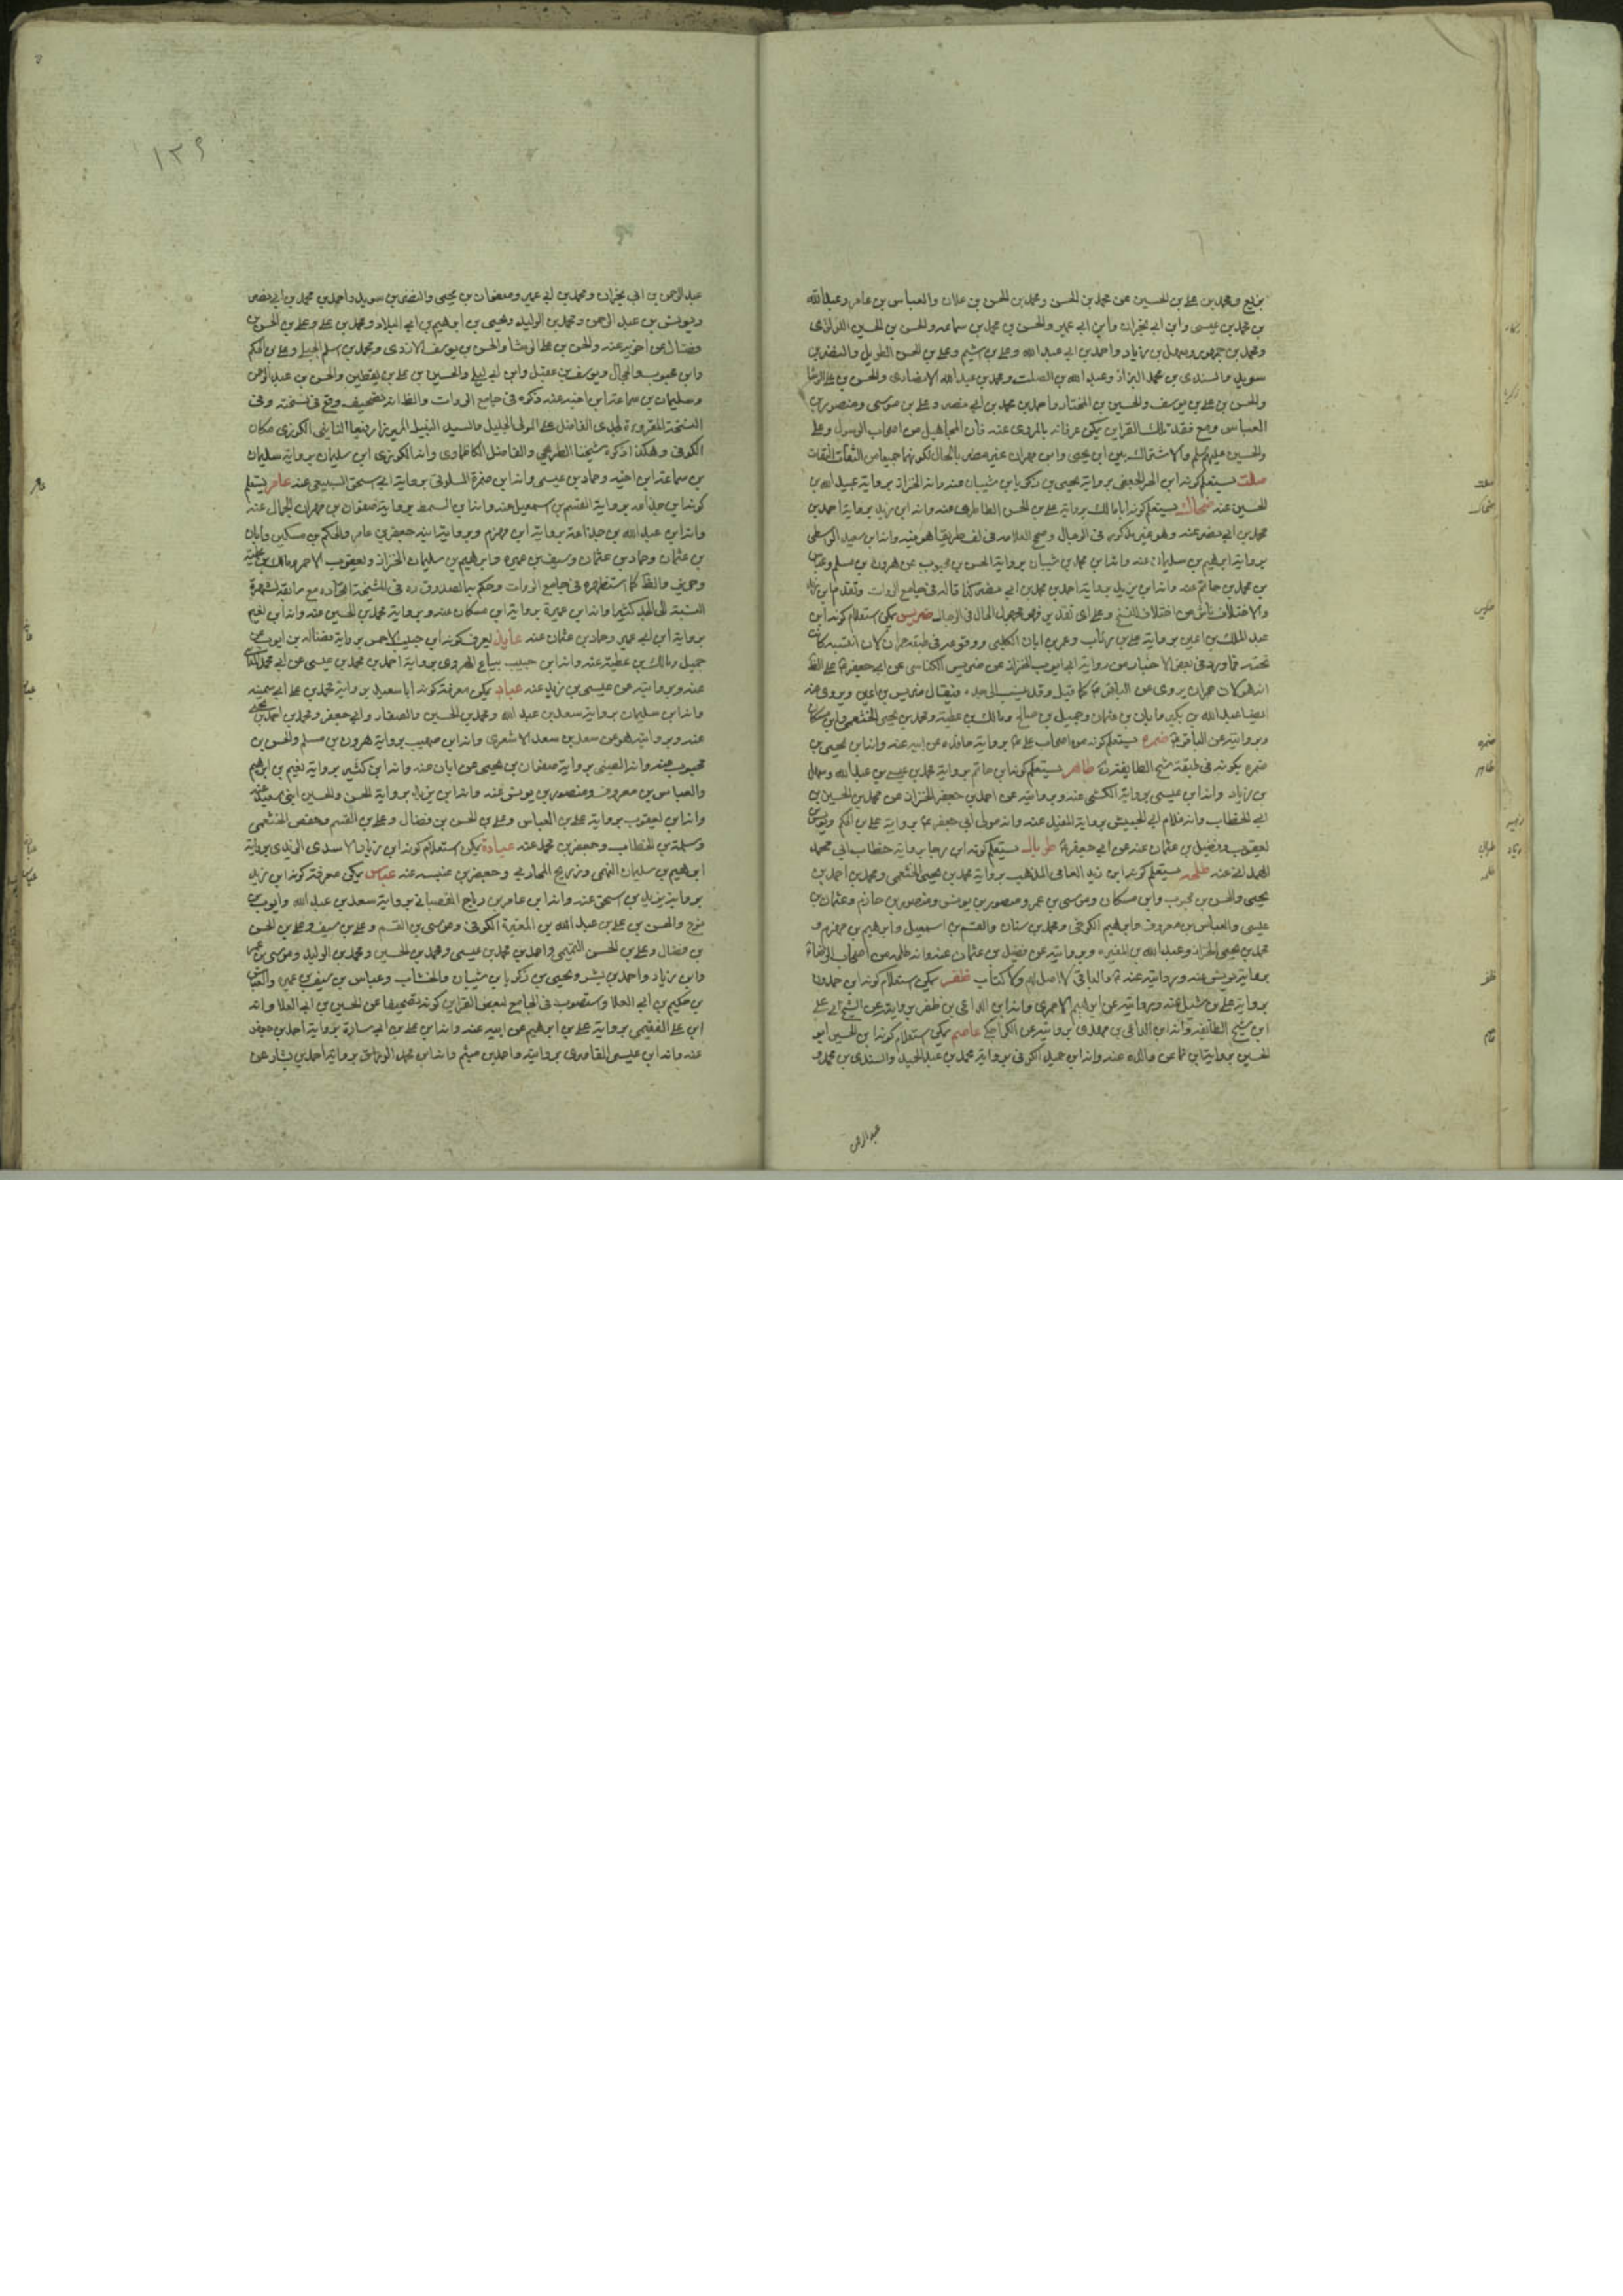 بزيع ومحمد بن علي بن الحسين عن محمد بن الحسن ومحمد بن الحسن بن علان والعباس بن عامر وعبد الله
بن محمد بن عيسى وابن ابي نجران وابن ابي عمير والحسن بن محمد بن سماعه والحسن بن الحسين اللؤلؤى
ومحمد بن جمهور وسهل بن زياد واحمد بن ابي عبد الله وعلي بن اشيم وعلي بن الحسن الطويل والنضر بن
سويد والسندى بن محمد البزاز وعبد الله بن الصلت ومحمد بن عبد الله الانصارى والحسن بن علي الوشا
والحسن بن علي بن يوسف والحسين بن المختار واحمد بن محمد بن ابي نصر وعلي بن موسى ومنصور بن
العباس ومع فقد تلك القراين يمكن عرفانه بالمروى عنه فان المجاهيل من اصحاب الرسول وعلي
والحسين عليهم السلم والاشتراك بين ابن يحيى وابن مهران غير مضر بالحال لكونهما جميعا من الثقات
صلت يستعلم كونه ابن الحر الجعفى برواية يحيى بن زكريا بن شيبان عنه وانه الخزاز برواية عبيد الله بن
الحسين عنه ضحاك يستعلم كونه ابا مالك برواية علي بن الحسن الطاطرى عنه وانه ابن زيد برواية احمد بن
محمد بن ابي نصر عنه وهو غير مذكور فى الرجال وصحح العلامه فى لف طريقا هو فيه وانه ابن سعيد الواسطى
برواية ابرهيم بن سليمان عنه وانه ابن محمد بن شيبان برواية الحسن بن محبوب عن هرون بن مسلم
بن محمد بن حاتم عنه وانه ابن يزيد برواية احمد بن محمد بن ابي نصر كذا قاله فى جامع الروات وتقدم ابن زيد
والاختلاف ناش من اختلاف النسخ وعلى اى تقدير فهو مجهول الحال فى الرجال ضريس يمكن استعلام كونه ابن
عبد الملك بن اعين برواية علي بن رئاب وعمر بن ابان الكلبى ووقوعه فى طبقة حمران لان
تحته فما ورد فى بعض الاخبار من رواية ابي ايوب الخزاز عن ضريس الكناسى عن ابي جعفر ع على الظ
انه هو كان حمران يروى عن الباقر ع كما قيل وقد ينسب الى جده فيقال ضريس بن اعين ويروى عنه
ايضا عبد الله بن بكير وابان بن عثمان وجميل بن صالح ومالك بن عطية ومحمد بن يحيى الخثعمى وابن مسكان
وبروايته عن الباقر ع ضمره يستعلم كونه من اصحاب علي ع برواية عن ابيه عنه وانه ابن يحيى بن
ضمره بكونه فى طبقة شيخ الطايفه ره طاهر يستعلم كونه ابن حاتم برواية محمد بن عيسى بن عبد الله وسهل
بن زياد وانه ابن عيسى برواية الكشى عنه وبروايته عن احمد بن جعفر الخزاز عن محمد بن الحسين بن
ابي الخطاب وانه غلام ابي الجيش برواية المفيد عنه وانه مولى ابي جعفر ع برواية علي بن الحكم ويونس
يعقوب وفضيل بن عثمان عنه عن ابي جعفر ع طربال يستعلم كونه ابن رجا برواية خطاب ابي محمد
الهمدانى عنه طلحه يستعلم كونه ابن زيد العامى المذهب برواية محمد بن يحيى الخثعمى ومحمد بن احمد بن
يحيى والحسن بن محبوب وابن مسكان وموسى بن عمر ومنصور بن يونس ومنصور بن حازم وعثمان بن
عيسى والعباس بن معروف وابرهيم الكرخى ومحمد بن سنان والقسم بن اسمعيل وابرهيم بن مهزم و
محمد بن يحيى الخزاز وعبد الله بن المغيره وبروايته عن فضيل بن عثمان عنه وانه ظلمه من اصحاب الرضا ع
برواية يونس عنه وبروايته عنه ع والباقى لا اصل لهم ولا كتاب ظفر يمكن استعلام كونه ابن حمدون
برواية علي بن شبل عنه وبروايته عن ابرهيم الاحمرى وانه ابن الداعى بن ظفر بروايته عن الشيخ ابي علي
ابن شيخ الطائفه وانه ابن الداعى بن مهدى بروايته عن الكراجكى عاصم يمكن استعلام كونه ابن الحسين ابو
الحسين بروايته عنه وانه ابن حميد الكوفى برواية محمد بن عبد الحميد والسندى بن محمد و
عبد الرحمن
١٣٩
عبد الرحمن بن ابي نجران ومحمد بن ابي عمير وصفوان بن يحيى والنضر بن سويد واحمد بن محمد بن ابي نصر
ويونس بن عبد الرحمن ومحمد بن الوليد ويحيى بن ابرهيم بن ابي البلاد ومحمد بن علي وعلي بن الحسن بن
فضال عن اخويه عنه والحسن بن علي الوشا والحسن بن يوسف الازدى ومحمد بن اسلم الجبلى وعلي بن الحكم
وابن محبوب والحجال ويوسف بن عقيل وابن ابي ليلى والحسين بن علي بن يقطين والحسن بن عبد الرحمن
وسليمان بن سماعة ابن اخيه عنه ذكره فى جامع الروات والظ انه تصحيف وقع فى نسخته وفى
الكوفى وهكذا ذكره شيخنا الطريحى والفاضل الكاظماوى وانه الكوزى ابن سليمان برواية سليمان
بن سماعة ابن اخيه وحماد بن عيسى وانه ابن ضمرة السلولى برواية ابي اسحق السبيعى عنه عامر يستعلم
كونه ابن جذاعه برواية القسم بن اسمعيل عنه وانه ابن السمط برواية صفوان بن مهران الجمال عنه
وانه ابن عبد الله بن جذاعة برواية ابن مهزم وبرواية ابنه جعفر بن عامر والحكم بن مسكين وابان
بن عثمان وحماد بن عثمان وسيف بن عميره وابرهيم بن سليمان الخزاز ويعقوب الاحمر ومالك بن عطية
وحريز والظ كما استظهره فى جامع الروات وحكم به الصدوق ره فى المشيخة اتحاده مع ما تقدم لشهرة
النسبة الى الجد كثيرا وانه ابن عميرة برواية ابن مسكان عنه وبرواية محمد بن الحسين عنه وانه ابن نعيم
برواية ابن ابي عمير وحماد بن عثمان عنه عايذ يعرف كونه ابن حبيب الاحمسى برواية فضاله بن ايوب عن
جميل ومالك بن عطية عنه وانه ابن حبيب بياع الهروى برواية احمد بن محمد بن عيسى عن ابي محمد
عنه وبروايته عن عيسى بن زيد عنه عباد يمكن معرفة كونه ابا سعيد برواية محمد بن علي ابي سمينه
وانه ابن سليمان برواية سعد بن عبد الله ومحمد بن الحسين والصفار وابي جعفر ومحمد بن احمد بن يحيى
عنه وبروايته هو عن سعد بن سعد الاشعرى وانه ابن صهيب برواية هرون بن مسلم والحسن بن
محبوب عنه وانه الضبى برواية صفوان بن يحيى عن ابان عنه وانه ابن كثير برواية نعيم بن ابرهيم
والعباس بن معروف ومنصور بن يونس عنه وانه ابن يزيد برواية الحسن والحسين ابنى سعيد عنه
وانه ابن يعقوب برواية علي بن العباس وعلي بن الحسن بن فضال وعلي بن القسم وحفص الخثعمى
وسلمة بن الخطاب وجعفر بن محمد عنه عبادة يمكن استعلام كونه ابن زياد الاسدى الزيدى برواية
ابرهيم بن سليمان النهمى وزريح المحاربى وجعفر بن عنبسه عنه عباس يمكن معرفة كونه ابن زيد
برواية يزيد بن اسحق عنه وانه ابن عامر بن رباح القصبانى برواية سعد بن عبد الله وايوب بن
نوح والحسن بن علي بن عبد الله بن المغيرة الكوفى وموسى بن القسم وعلي بن سيف وعلي بن الحسن
بن فضال وعلي بن الحسن التيمى واحمد بن محمد بن عيسى ومحمد بن الحسين ومحمد بن الوليد وموسى بن عمر
وابن زياد واحمد بن بشر ويحيى بن زكريا بن شيبان والخشاب وعباس بن سيف بن عميره
بن حكيم بن ابي العلا واستصوب فى الجامع لبعض القراين كونه تصحيفا عن الحسين بن ابي العلا وانه
ابن علي الفقيمى برواية علي بن ابرهيم عن ابيه عنه وانه ابن علي بن ابي سارة برواية احمد بن جعفر
عنه وانه ابن عيسى الغاضرى بروايته واحمد بن ميثم وانه ابن محمد الوراق برواية احمد بن بشار عن